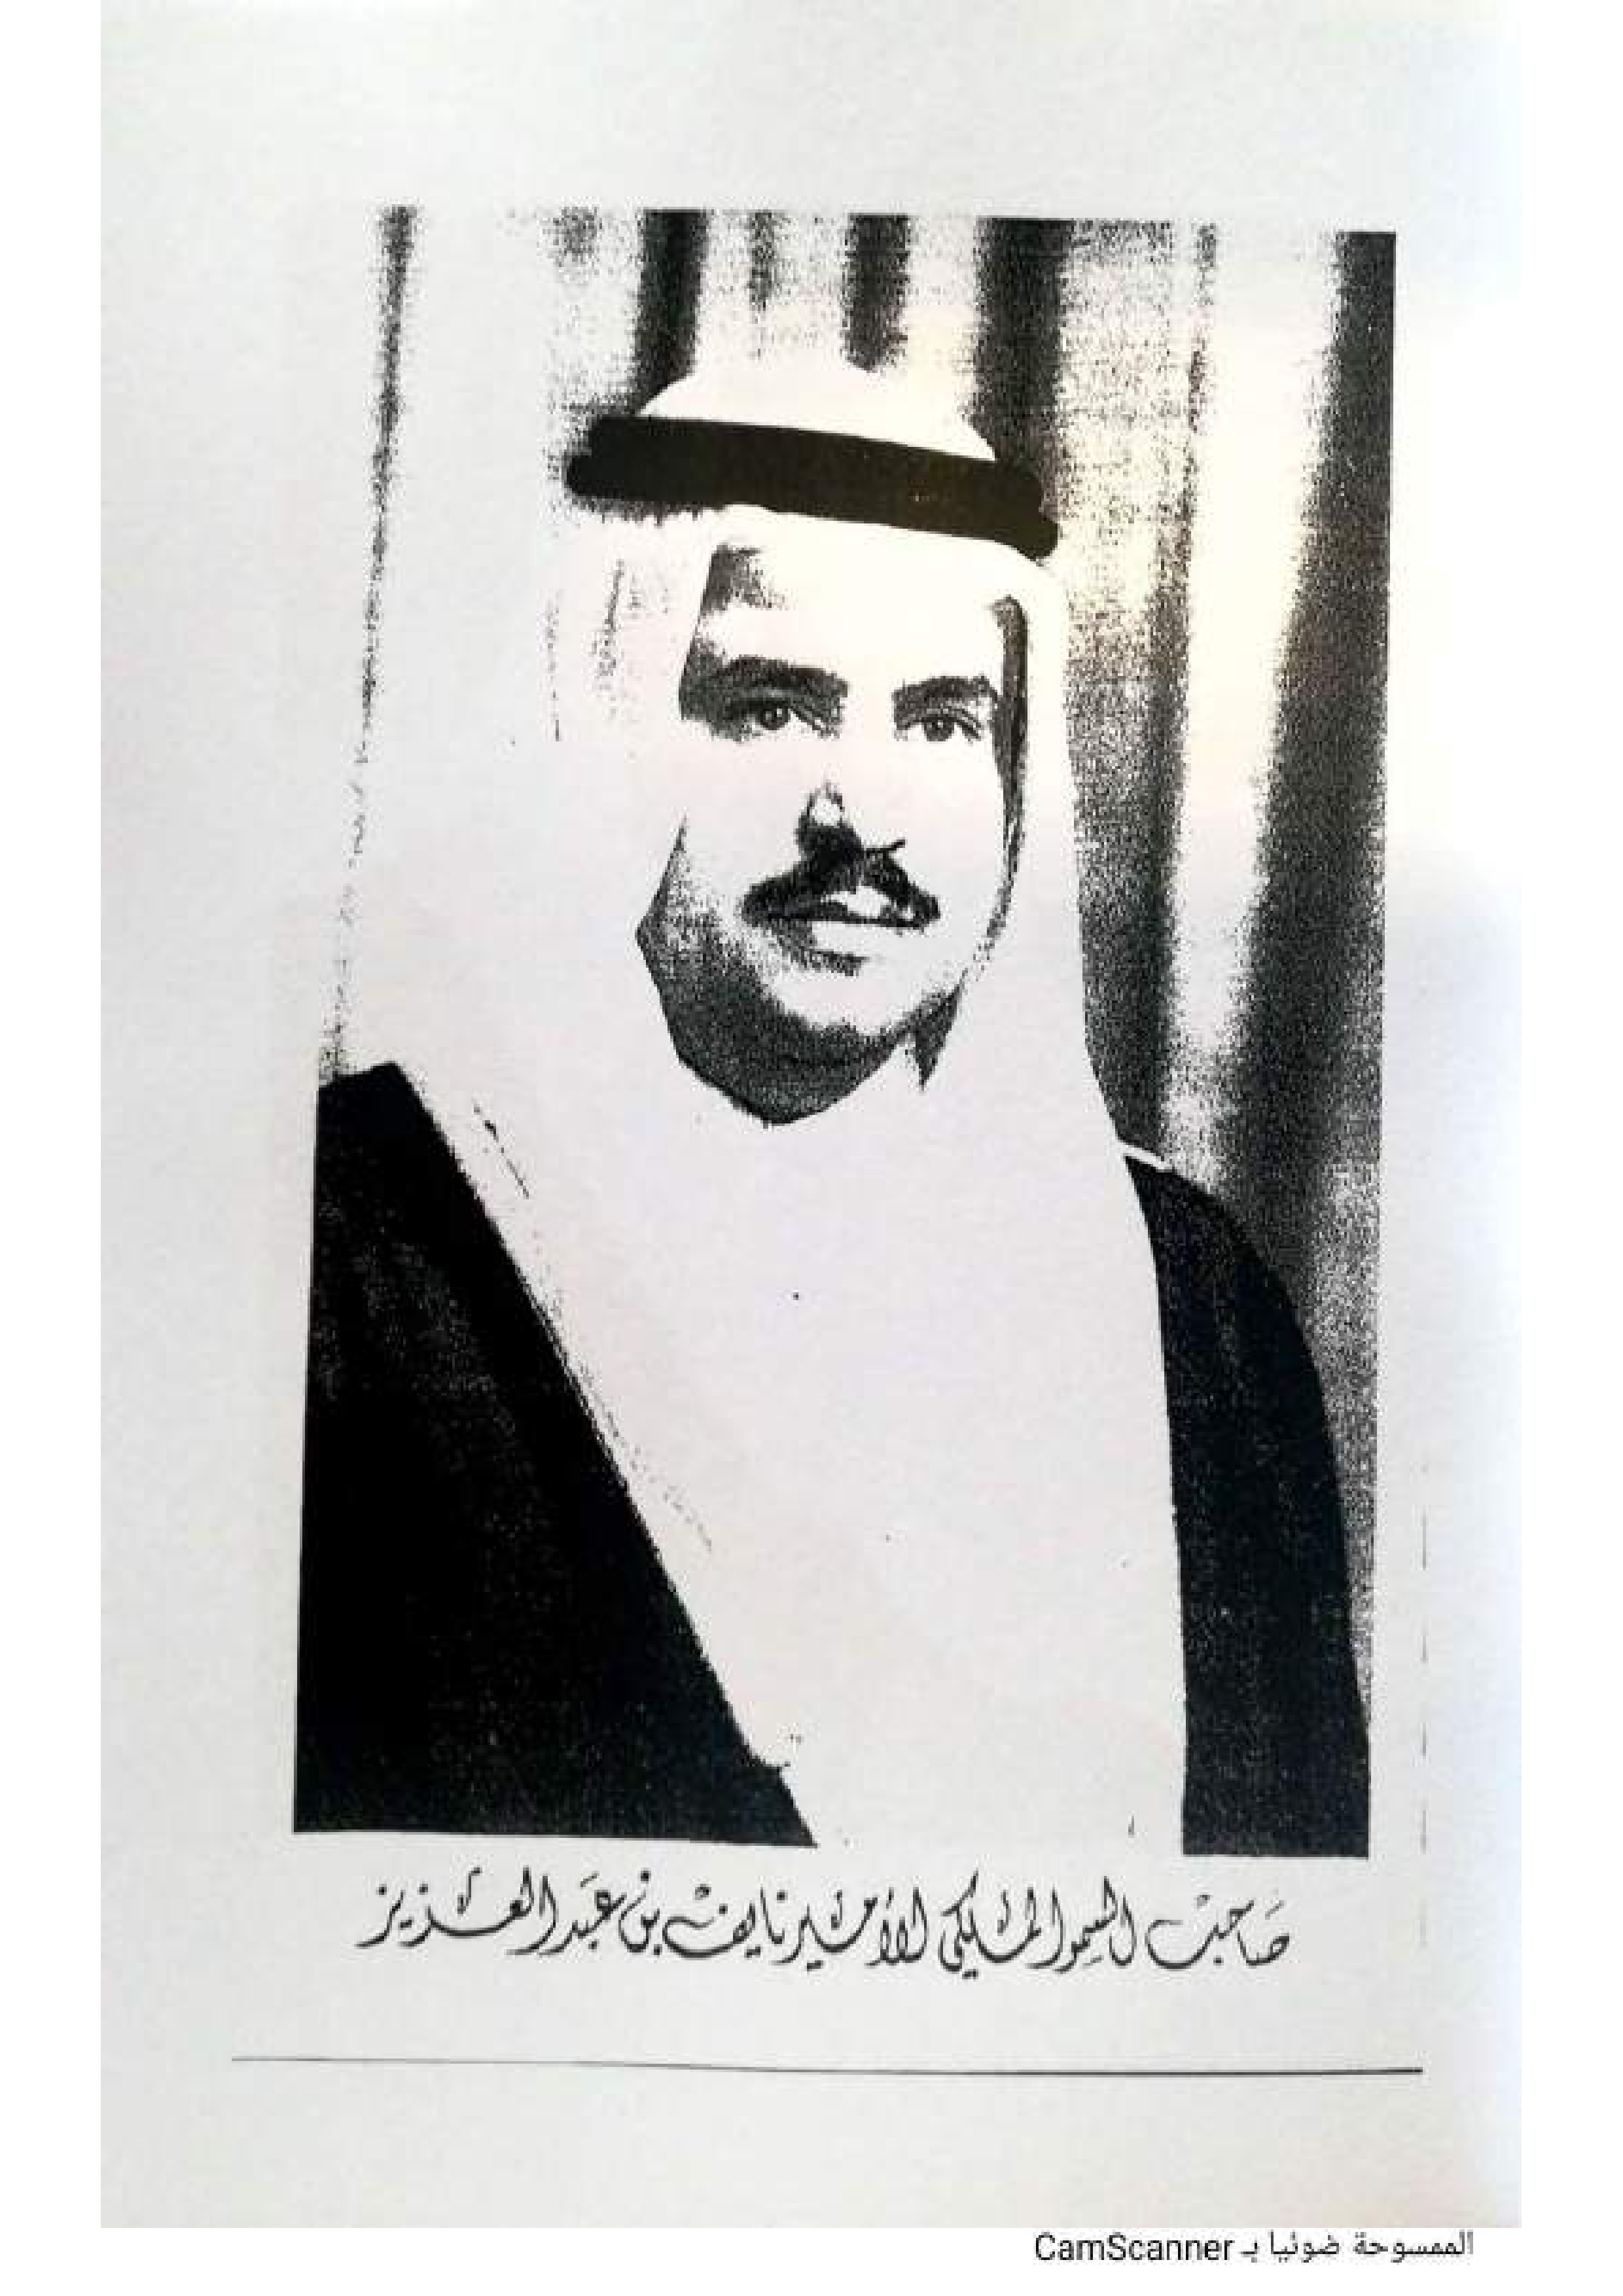 صاحب السمو الملكي الأمير نايف بن عبد العزيز
الممسوحة ضوئيا بـ CamScanner